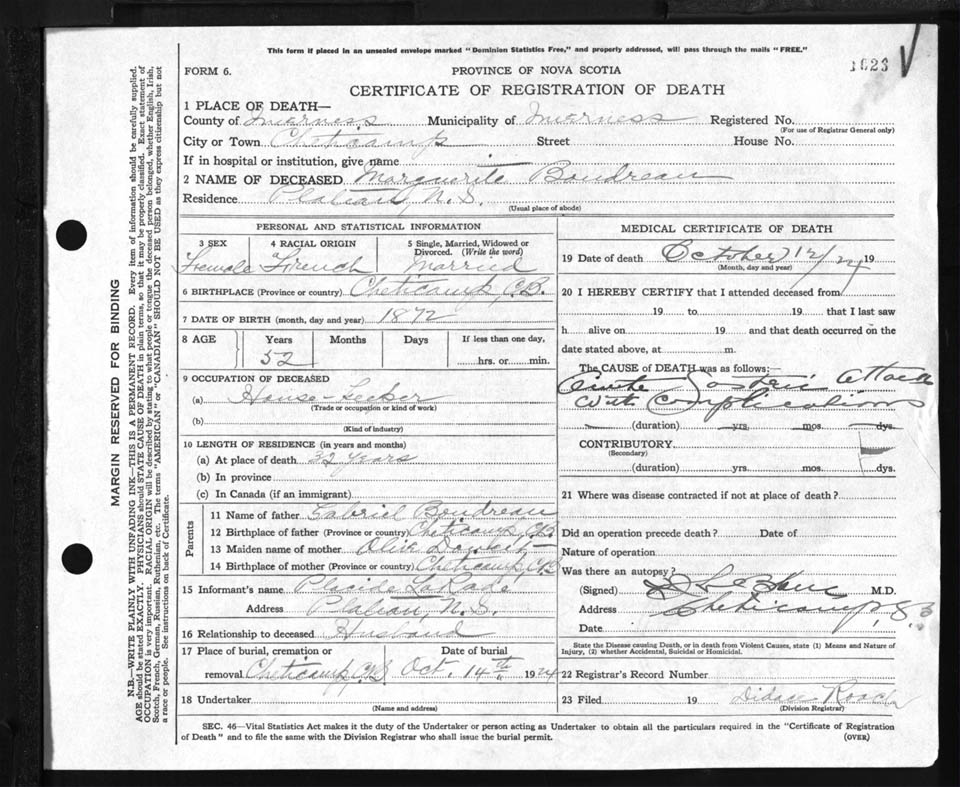 This form if placed in an unsealed envelope marked "Dominion Statistics Free," and properly addressed, will pass through the mails "FREE."
1623
FORM 6.
PROVINCE OF NOVA SCOTIA
CERTIFICATE OF REGISTRATION OF DEATH
1 PLACE OF DEATH—
County of Inverness Municipality of Inverness Registered No.
(For use of Registrar General only)
City or Town Cheticamp Street House No.
If in hospital or institution, give name
2 NAME OF DECEASED Marguerite Boudreau
Residence Plateau, N.S.
(Usual place of abode)
PERSONAL AND STATISTICAL INFORMATION
3 SEX 4 RACIAL ORIGIN 5 Single, Married, Widowed or Divorced. (Write the word)
Female French Married
6 BIRTHPLACE (Province or country) Cheticamp, C.B.
7 DATE OF BIRTH (month, day and year) 1872
8 AGE Years Months Days If less than one day,
52 hrs. or min.
9 OCCUPATION OF DECEASED
(a) House-keeper
(Trade or occupation or kind of work)
(b)
(Kind of industry)
10 LENGTH OF RESIDENCE (in years and months)
(a) At place of death 32 years
(b) In province
(c) In Canada (if an immigrant)
Parents
11 Name of father Gabriel Boudreau
12 Birthplace of father (Province or country) Cheticamp, C.B.
13 Maiden name of mother Olive
14 Birthplace of mother (Province or country) Cheticamp, C.B
15 Informant's name Placide LaRade
Address Plateau, N.S.
16 Relationship to deceased Husband
17 Place of burial, cremation or Date of burial
removal Cheticamp, C.B. Oct. 14th 1924
18 Undertaker
(Name and address)
MEDICAL CERTIFICATE OF DEATH
19 Date of death October 12/24 19
(Month, day and year)
20 I HEREBY CERTIFY that I attended deceased from
19 to 19 that I last saw
h alive on 19 and that death occurred on the
date stated above, at m.
The CAUSE OF DEATH was as follows:—
attack
with complications
(duration) yrs. mos. dys.
CONTRIBUTORY
(Secondary)
(duration) yrs. mos. dys.
21 Where was disease contracted if not at place of death?
Did an operation precede death? Date of
Nature of operation
Was there an autopsy?
(Signed) LeBlanc M.D.
Address Cheticamp,
Date
State the Disease causing Death, or in death from Violent Causes, state (1) Means and Nature of
Injury, (2) whether Accidental, Suicidal or Homicidal.
22 Registrar's Record Number
23 Filed 19 Roach
(Division Registrar)
SEC. 46—Vital Statistics Act makes it the duty of the Undertaker or person acting as Undertaker to obtain all the particulars required in the "Certificate of Registration
of Death" and to file the same with the Division Registrar who shall issue the burial permit. (OVER)
MARGIN RESERVED FOR BINDING
N.B.—WRITE PLAINLY WITH UNFADING INK—THIS IS A PERMANENT RECORD. Every item of information should be carefully supplied.
AGE should be stated EXACTLY. PHYSICIANS should STATE CAUSE OF DEATH in plain terms, so that it may be properly classified. Exact statement of
OCCUPATION is very important. RACIAL ORIGIN will be described by stating to what people or tongue the deceased person belonged, whether English, Irish,
Scotch, French, German, Russian, Ruthenian, etc. The terms "AMERICAN" or "CANADIAN" SHOULD NOT BE USED as they express citizenship but not
a race or people. See instructions on back of Certificate.